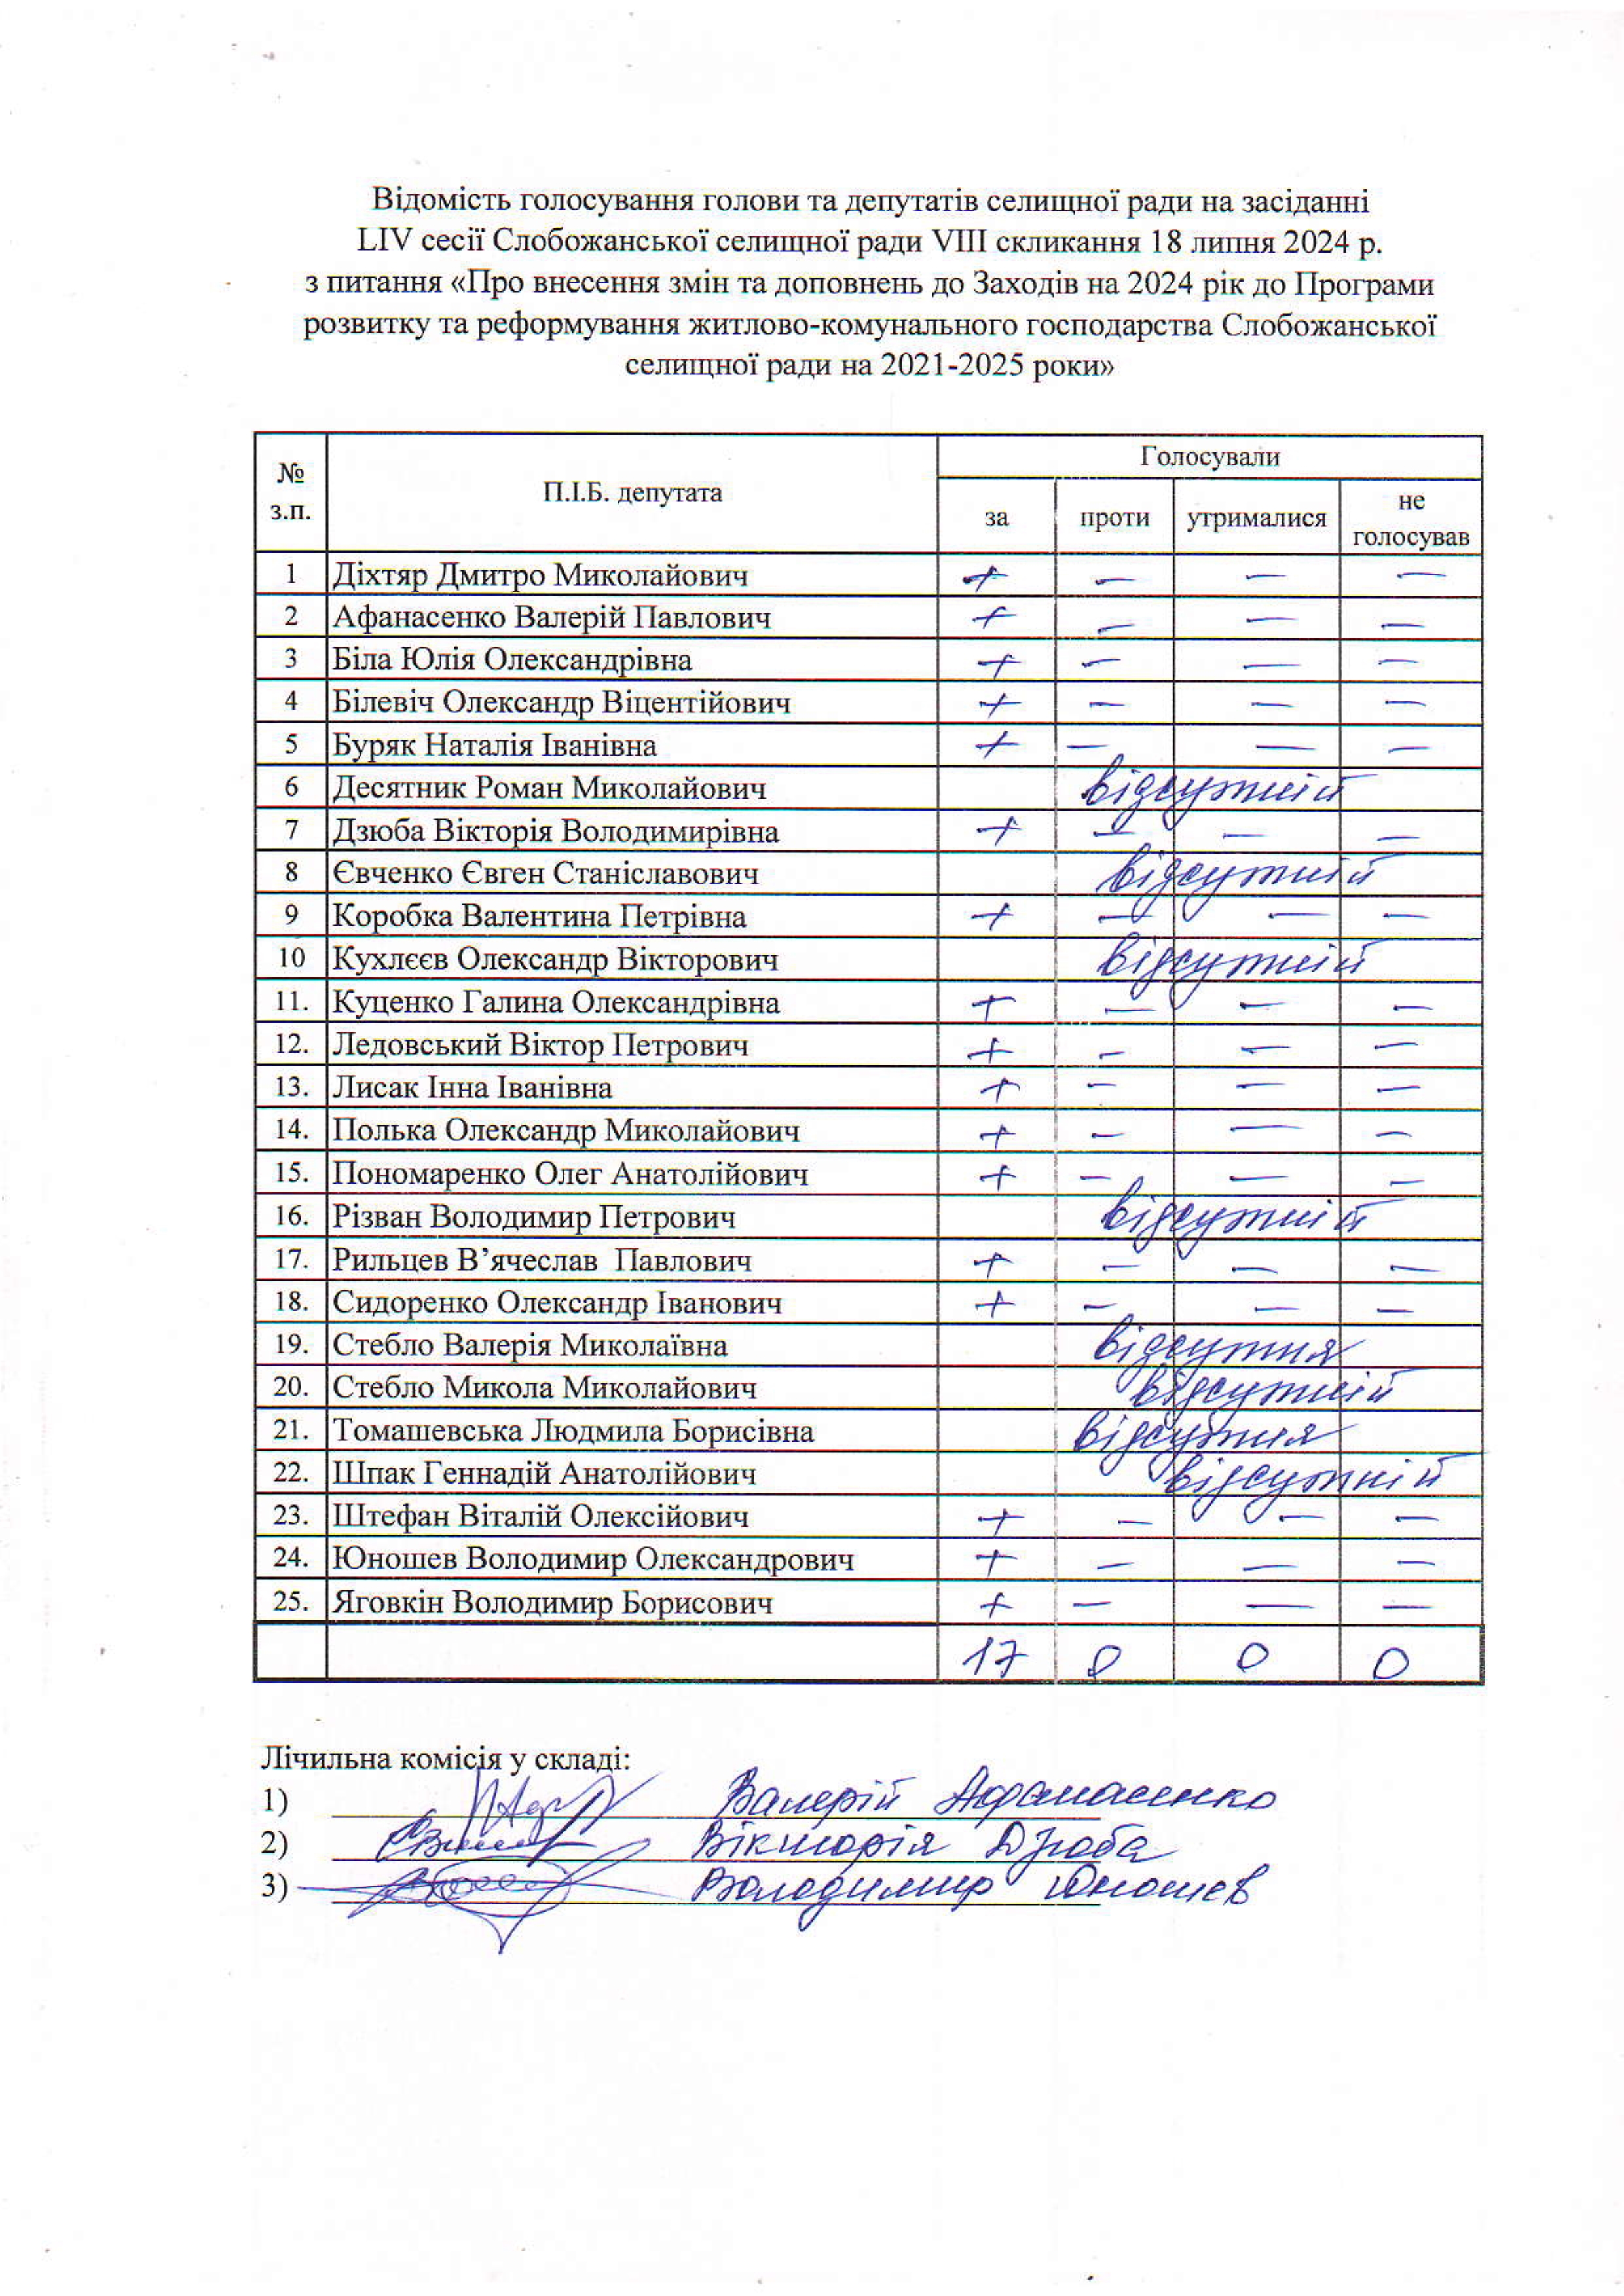 Відомість голосування голови та депутатів селищної ради на засіданні
LIV сесії Слобожанської селищної ради VIII скликання 18 липня 2024 р.
з питання «Про внесення змін та доповнень до Заходів на 2024 рік до Програми
розвитку та реформування житлово-комунального господарства Слобожанської
селищної ради на 2021-2025 роки»
№ з.п. П.І.Б. депутата Голосували
за проти утрималися не голосував
1 Діхтяр Дмитро Миколайович + – – –
2 Афанасенко Валерій Павлович + – – –
3 Біла Юлія Олександрівна + – – –
4 Білевіч Олександр Віцентійович + – – –
5 Буряк Наталія Іванівна + – – –
6 Десятник Роман Миколайович відсутній
7 Дзюба Вікторія Володимирівна + – – –
8 Євченко Євген Станіславович відсутній
9 Коробка Валентина Петрівна + – – –
10 Кухлєєв Олександр Вікторович відсутній
11. Куценко Галина Олександрівна + – – –
12. Ледовський Віктор Петрович + – – –
13. Лисак Інна Іванівна + – – –
14. Полька Олександр Миколайович + – – –
15. Пономаренко Олег Анатолійович + – – –
16. Різван Володимир Петрович відсутній
17. Рильцев В’ячеслав Павлович + – – –
18. Сидоренко Олександр Іванович + – – –
19. Стебло Валерія Миколаївна відсутня
20. Стебло Микола Миколайович відсутній
21. Томашевська Людмила Борисівна відсутня
22. Шпак Геннадій Анатолійович відсутній
23. Штефан Віталій Олексійович + – – –
24. Юношев Володимир Олександрович + – – –
25. Яговкін Володимир Борисович + – – –
17 0 0 0
Лічильна комісія у складі:
1) Валерій Афанасенко
2) Вікторія Дзюба
3) Володимир Юношев